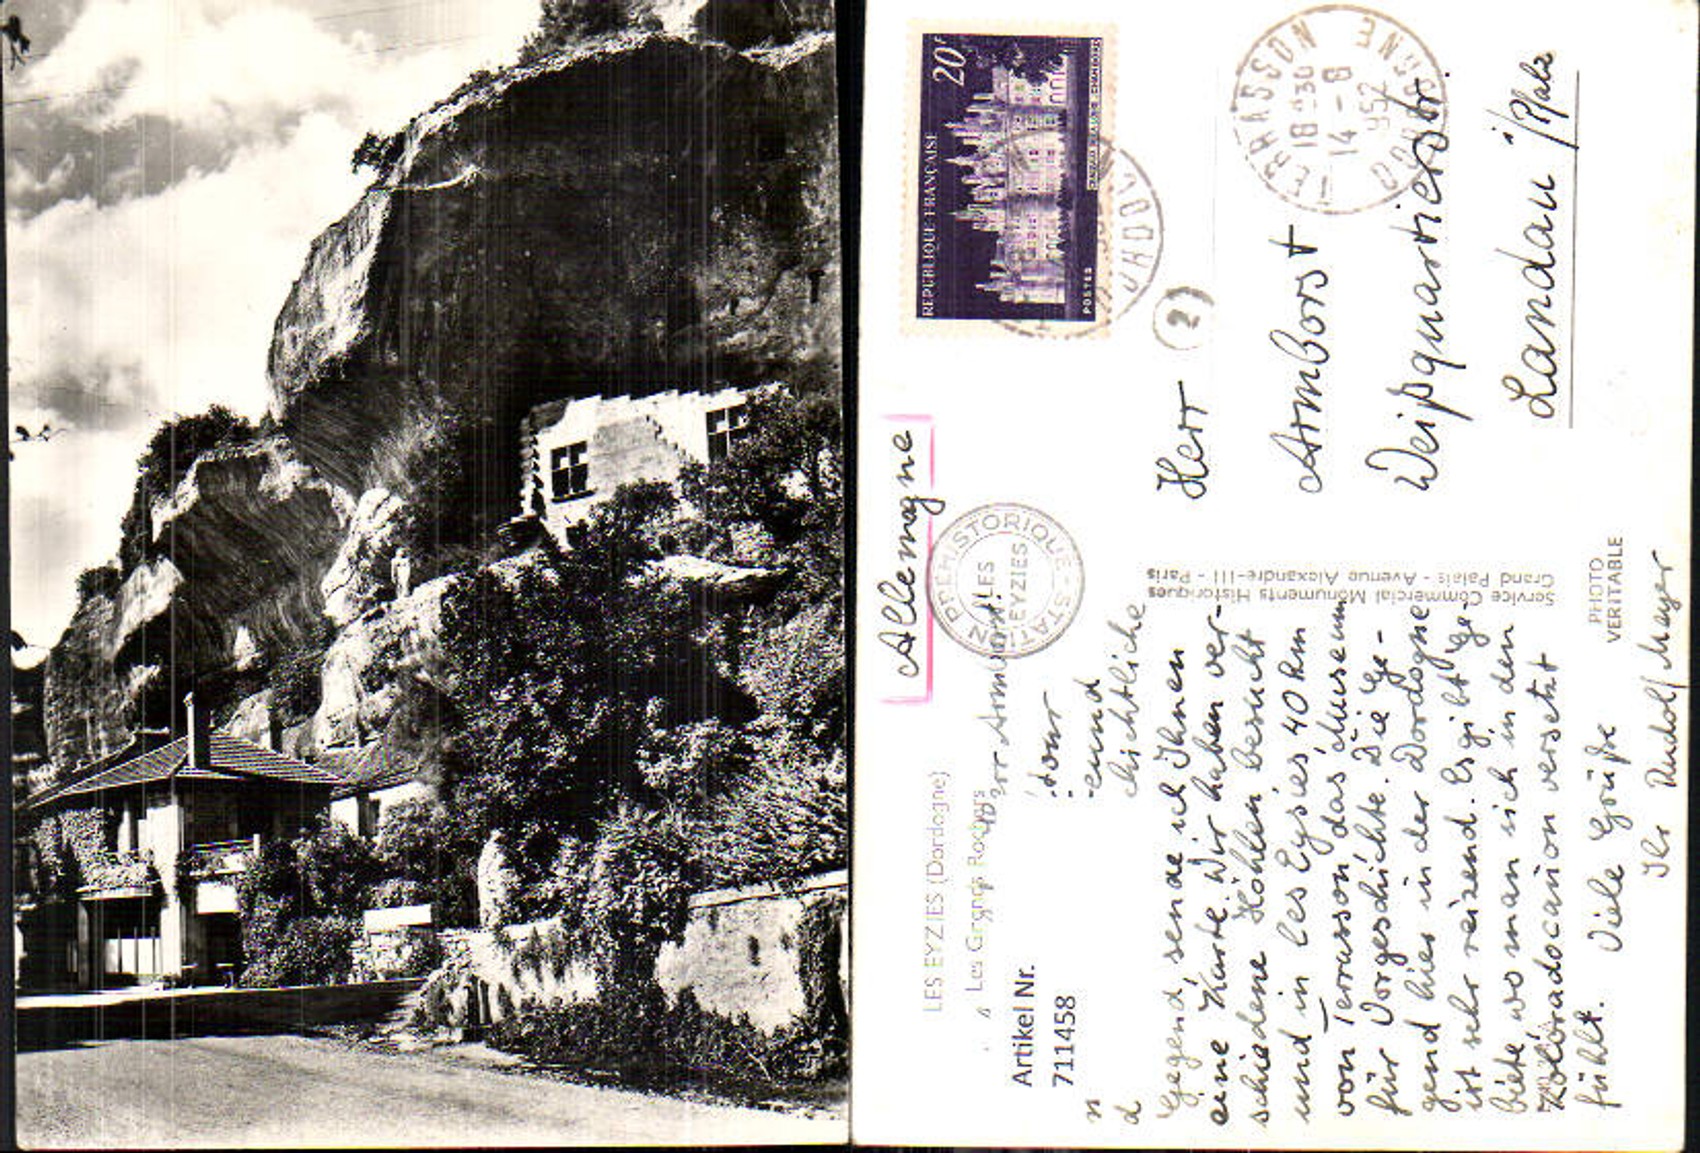 LES EYZIES (Dordogne)
Les Grands Rochers
Artikel Nr.
711458
chichtliche
Gegend, sende ich Ihnen
eine Karte. Wir haben ver-
schiedene Höhlen besucht
und in Les Eyzies 40 km
von Terrasson das Museum
für Vorgeschichte. Die Ge-
gend hier in der Dordogne
ist sehr reizend. Es gibt Ge-
biete wo man sich in den
versetzt
fühlt. Viele Grüße
Ihr Rudolf Mayer
Allemagne
STATION PRÉHISTORIQUE
LES
EYZIES
Service Commercial Monuments Historiques
Grand Palais - Avenue Alexandre-III - Paris
PHOTO
VERITABLE
REPUBLIQUE FRANÇAISE
20F
POSTES
CHATEAU DE LA LOIRE . CHAMBORD
TERRASSON
18 H30
14 - 8
952
DORDOGNE
2
Herr
Armborst
Weißquartierstr.
Landau i/Pfalz